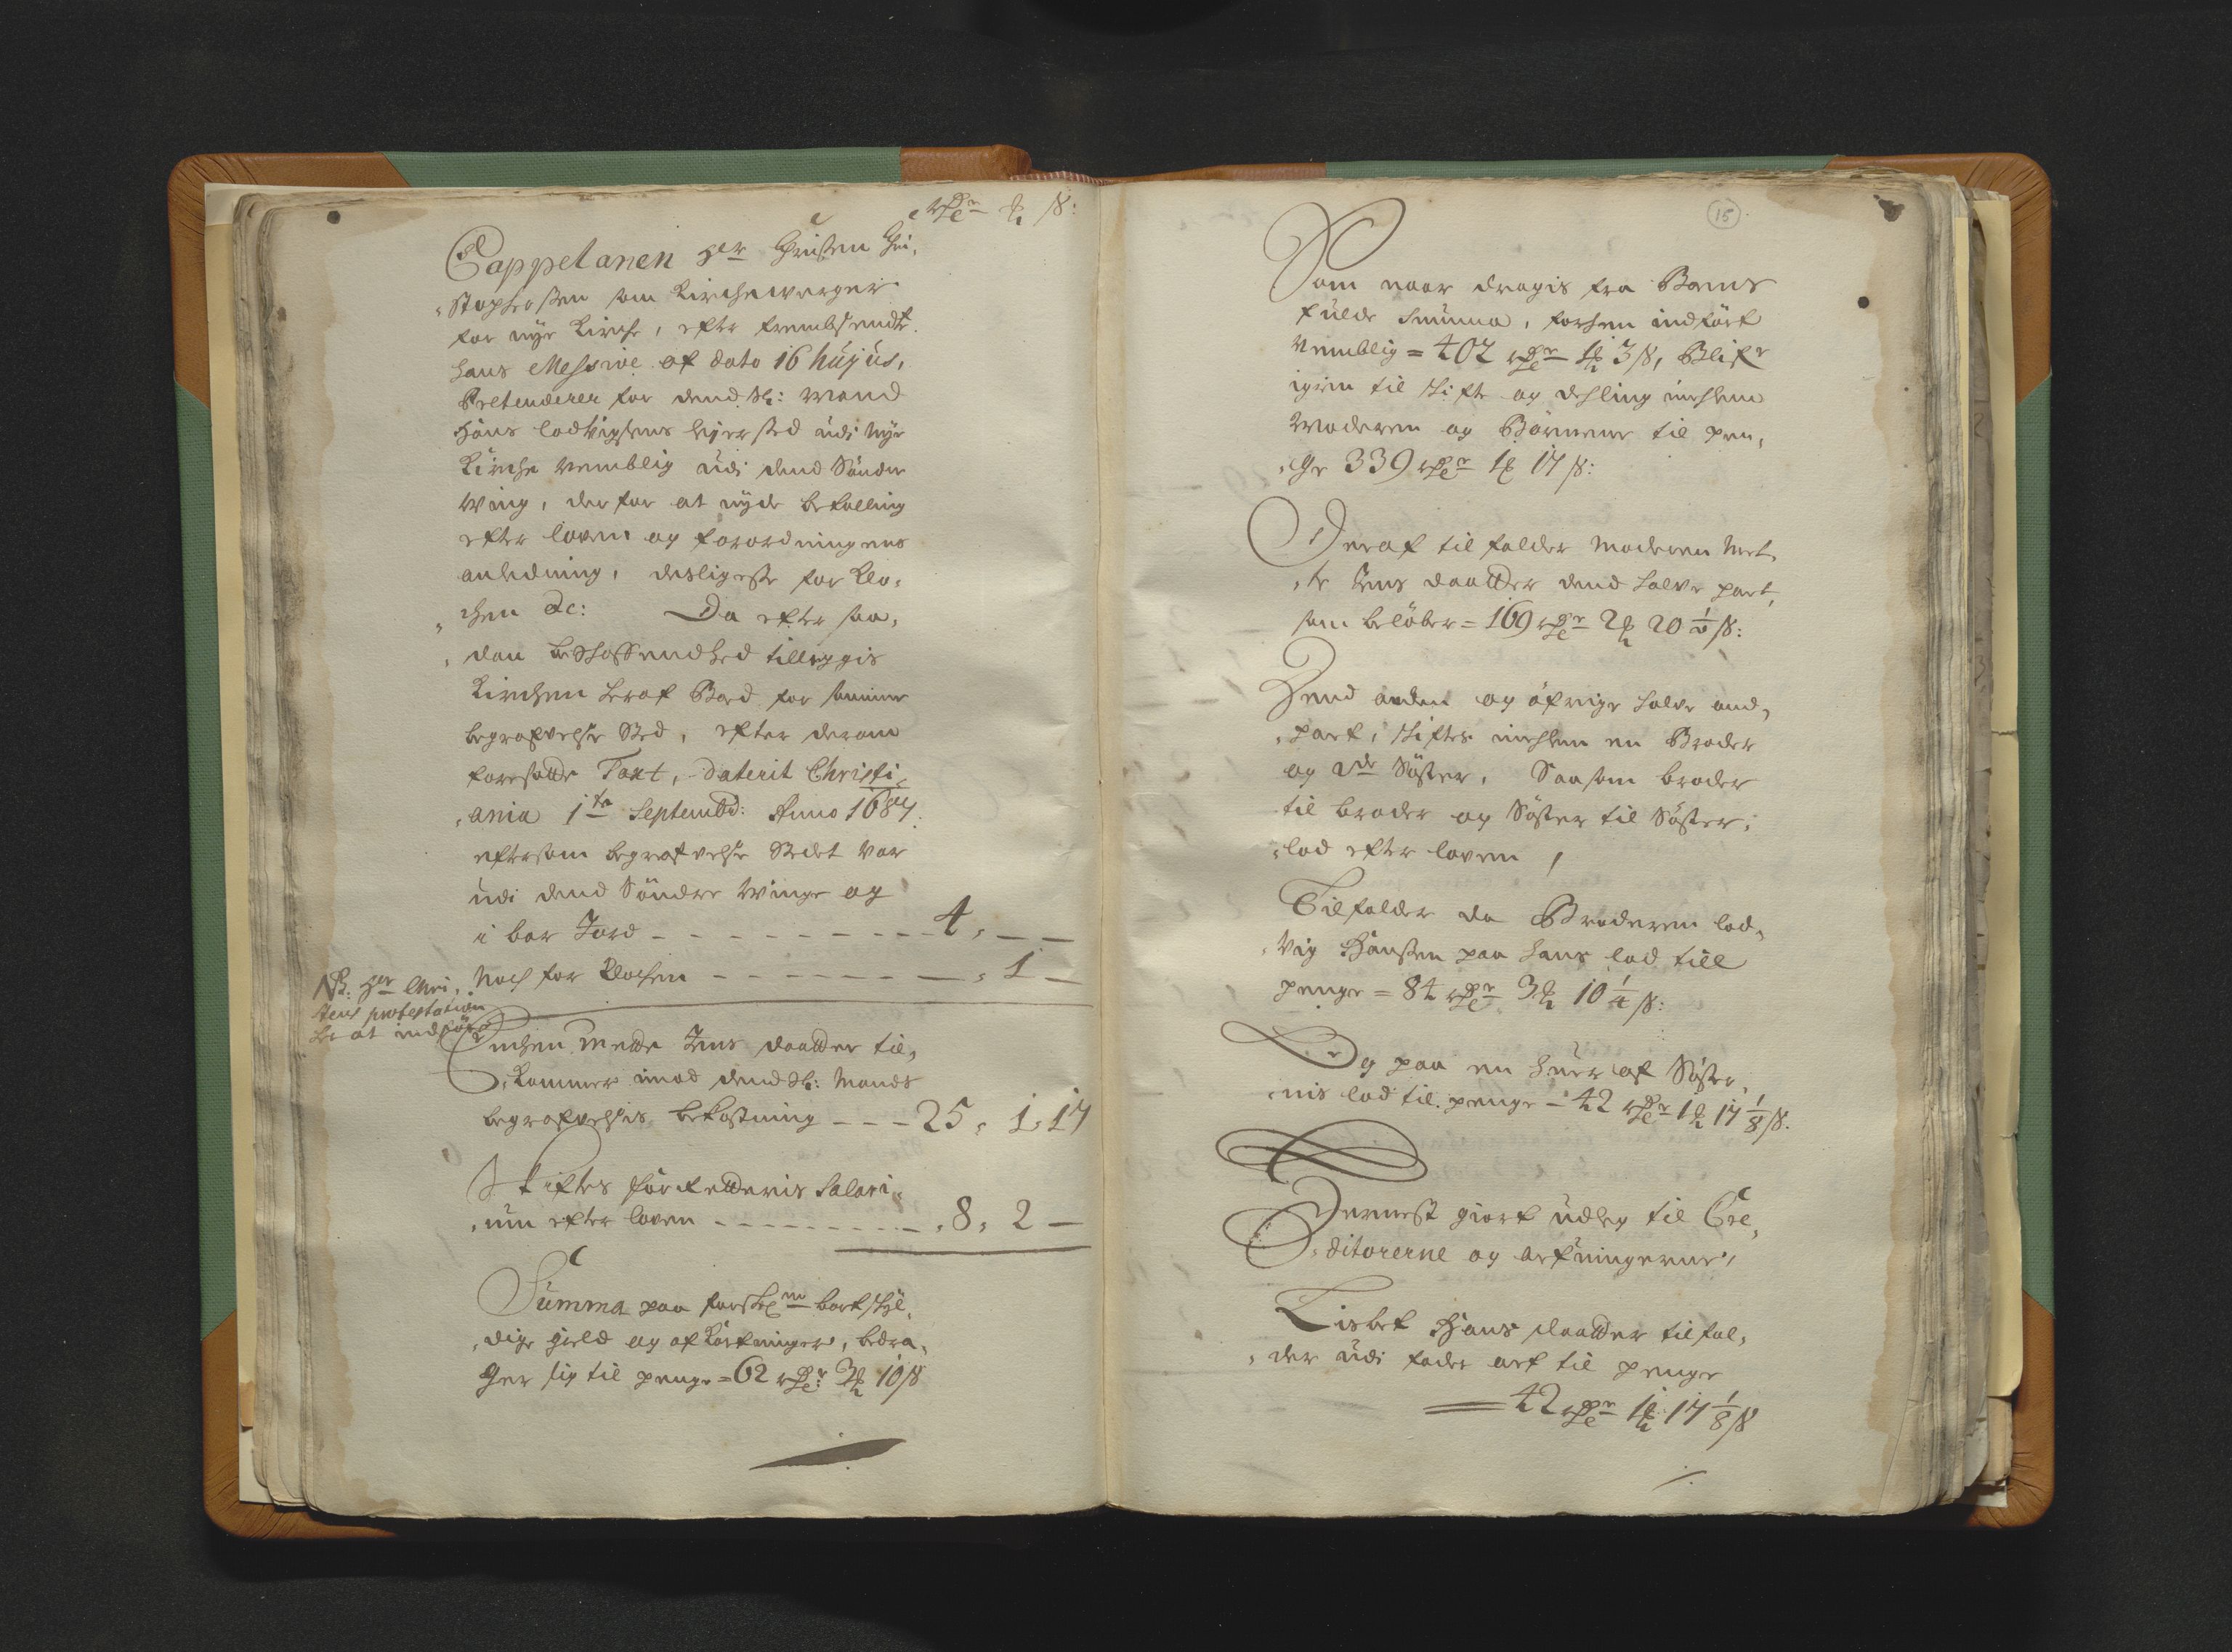 rdr ort ß:
Cappelanen Hr Christen Chri-
stophersen som Kirchewerger
for nye Kirche, efter frembsendte
hans Messive af dato 16 hujus,
Pretenderer for dend Sl: Mand
Hans Lodvigsens leiersted udi Nye
Kirche nemblig udi dend Söndre
Wing, derfor at nyde betalling
efter loven og forordningens
anledning, desligeste for Klo-
chen &c: Da efter saa-
dan beschaffendhed tilleggis
Kirchen heraf Boed for samme
begrafvelse Sted, efter derom
foresatte Taxt, daterit Christi-
ania 1te Septembr: Anno 1684
eftersom begrafvelse Stedet var
udi dend Söndre Winge og
i bar Jord - - - 4, — —
Noch for Klochen - - - — , 1 —
NB: Hr Chri-
stens protestation
her at indföre
Enchen Mette Jens daatter til-
kommer imod dend Sl: Mands
begrafvelsis bekostning - - - 25, 1, 17
Skiftes forvalteris Salari-
um efter loven - - - 8, 2 —
Summa paa forskrne bortskyl-
dige gield og afkortninger, bedra-
ger sig til penge = 62 rdr 3 ort 10 ß
15
Som naar dragis fra Boens
fulde Summa, forhen indfört
nemblig = 402 rdr 1 ort 3 ß, Blifr
igien til skifte og dehling imellem
Moderen og Börnene til pen-
ge 339 rdr 1 ort 17 ß:
Deraf tilfalder Moderen Met-
te Jens daatter dend halve part,
som belöber = 169 rdr 2 ort 20 ½ ß:
Dend anden og öfrige halve and-
part, skiftes imellem en Broder
og 2de Söster, Saasom broder
til broder og Söster til Söster-
lod efter loven,
Tilfalder da Broderen Lod-
vig Hansen paa hans lod till
penge = 84 rdr 3 ort 10 ¼ ß:
Og paa en huer af Söster-
nis lod til penge = 42 rdr 1 ort 17 ⅛ ß.
Dernest giort udleg til Cre-
ditorerne og arfvingerne,
Lisbet Hans daatter tilfal-
der udi fader arf til penge
= 42 rdr 1 ort 17 ⅛ ß